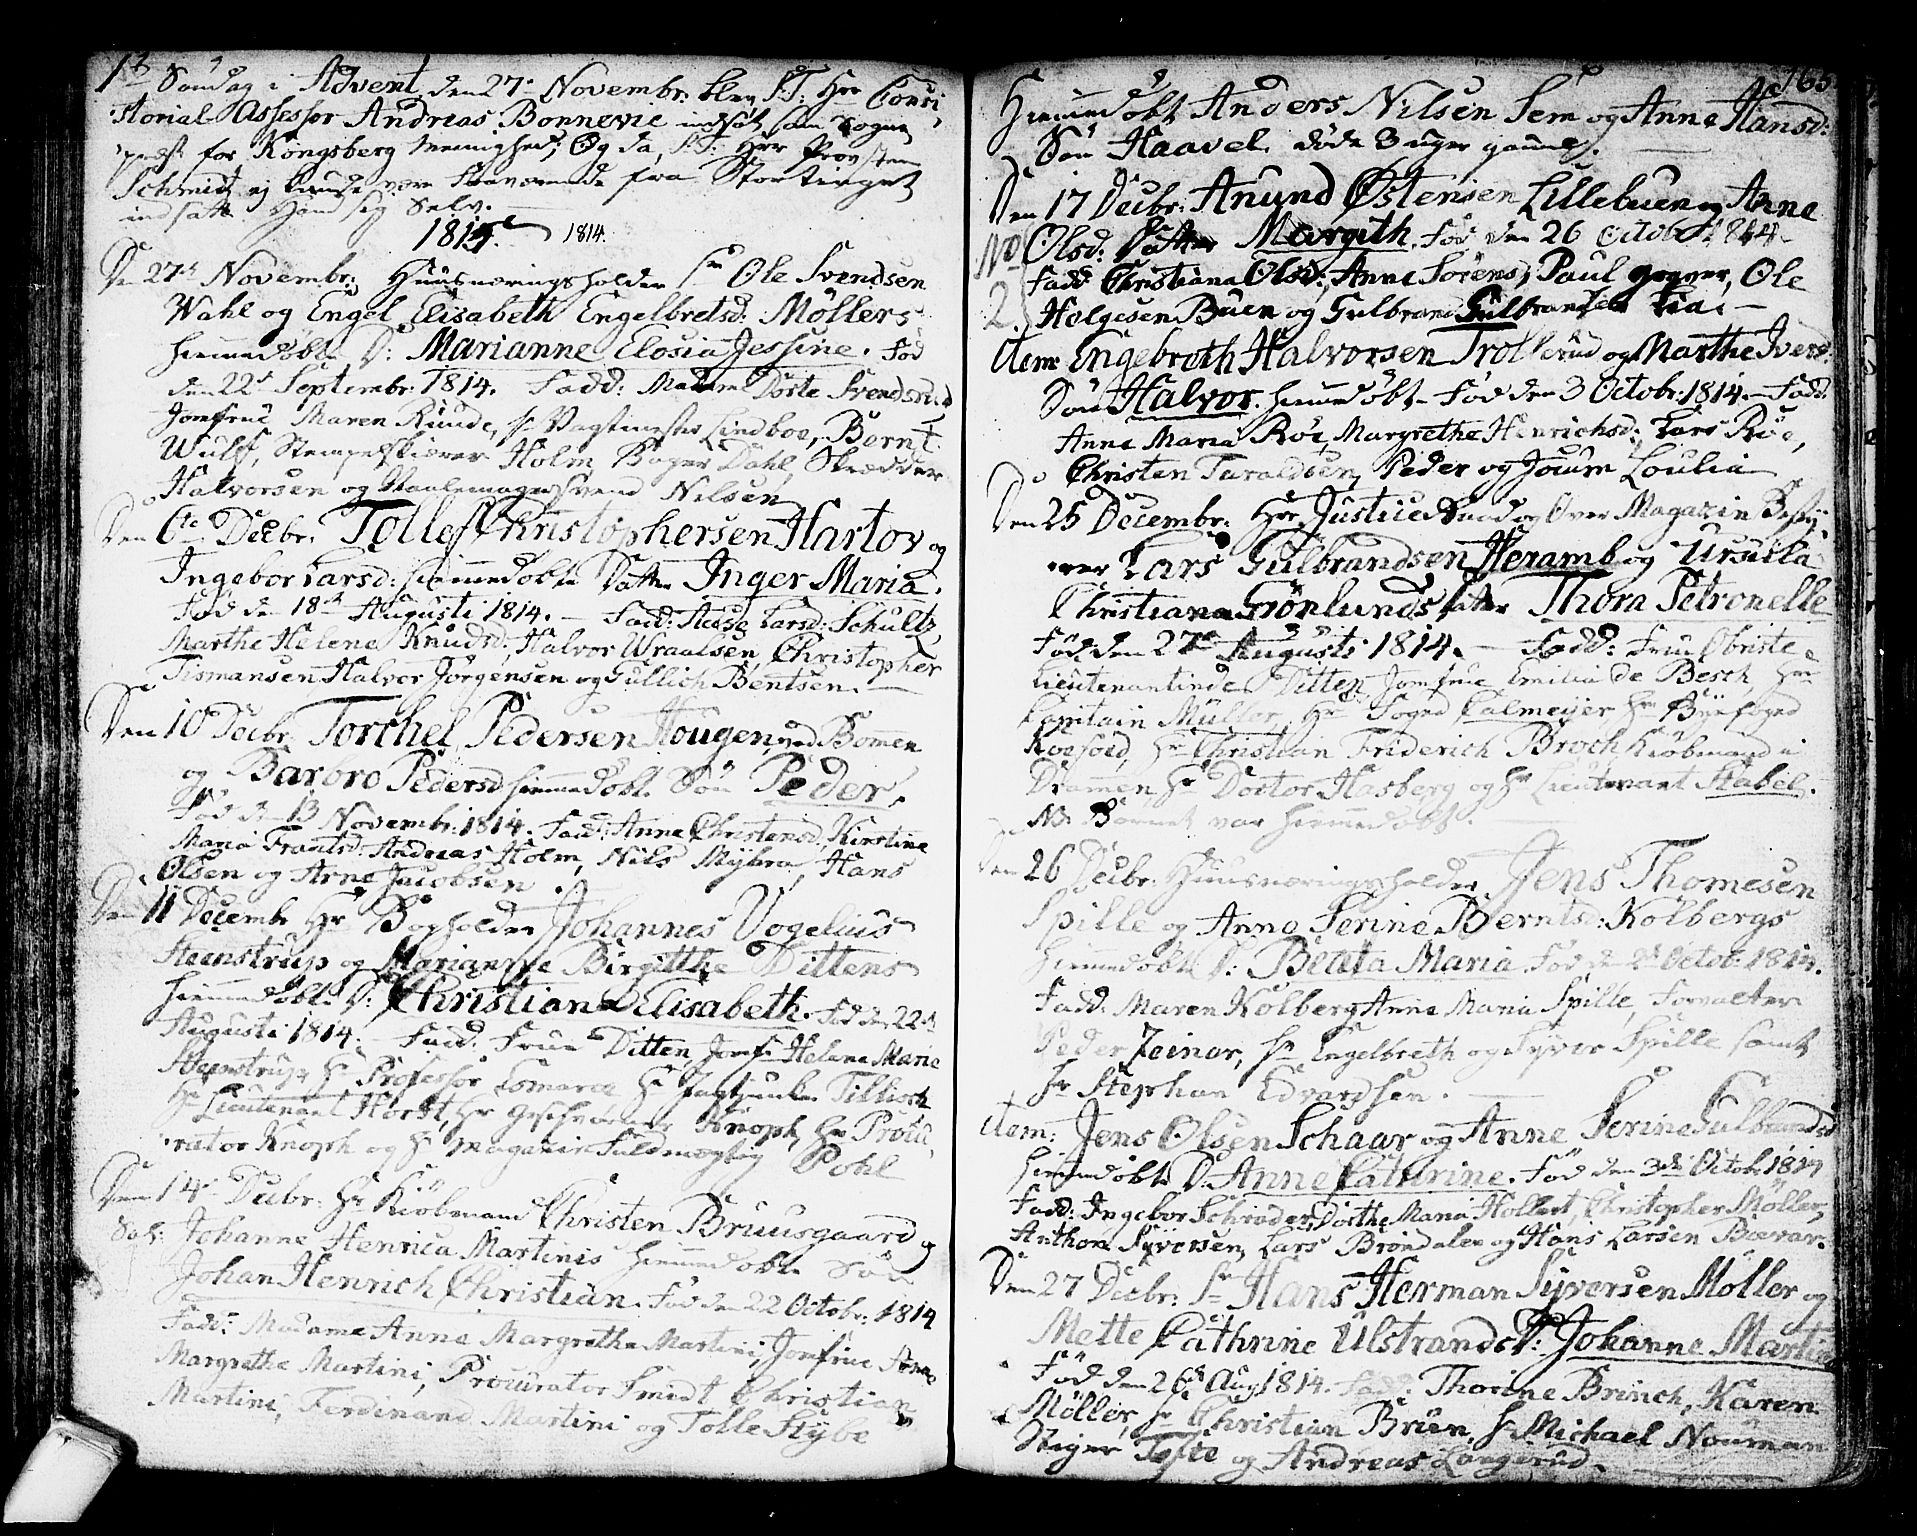 1ste Søndag i Advent, den 27de Novembr: blev S.T. Hrr Consi,
storial Assessor Andreas Bonnevie indsat som Sogne
præst for Kongsberg Menighed; Og da, S.T. Herr Provsten
Schmidt ej kunde være fraværende fra Stortinget
indsatte Hand sig Selv.
1814. 1814.
Den 27de Novembr: Huusnæringsholder Sr Ole Svendsen
Wahl og Engel Elisabeth Engelbretsd: Møllers
hiemmedøbte D: Marianne Elosia Jessine. Fød
den 22de Septembr: 1814. Fadd: Madam Dorte Svendsrud
Jomfrue Maren Runde, Sr Vagtmester Lindboe, Bernt
Wulff, Stempelskiærer Holm, Bager Dahl, Skrædder
Halvorsen og Maalemager Svend Nilsen
Den 6te Decbr: Tollef Christophersen Hartov og
Ingebor Larsd: hiemmedøbte Datter Inger Maria.
Fød den 18de Augusti 1814. — Fadd: Aase Larsd: Schultz,
Marthe Helene Knudsd:, Halvor Wraalsen, Christopher
Tismansen, Halvor Jørgensen og Gullich Bentsen. —
Den 10 Decbr: Torchel Pedersen Hougen, ved Bommen
og Barbro Pedersd: hiemmedøbt Søn Peder.
Fød den 13 Novembr: 1814. Fadd: Anne Christensd:, Kirstine
Maria Frantsd: Andreas Holm, Nils Myhra, Hans
Olsen og Arne Jacobsen.
Den 11 Decembr: Hr Bogholder Johannes Vogelius
Steenstrup og Marianne Birgitthe Dittens
hiemmedøbte D: Christiane Elisabeth. Fød den 22de
Augusti 1814. — Fadd: Frue Ditten, Jomfr Helene Marie
Steenstrup, Hr Professor Esmarck Hr Jagtjunker Tillisch
Hr Lieutenant Horst, Hr Geschworner Knoph, Hr Procu,
rator Knoph og Hr Magazin Fuldmægtig Pohl
Den 14de Decbr: Hr Kiøbmand Christen Bruusgaard og
Sal: Johanne Henrica Martinis hiemmedøbte Søn
Johan Henrich Christian. Fød den 22 Octobr: 1814
Fadd: Madame Anne Margrethe Martini, Jomfrue Anne
Margrethe Martini, Procurator Smidt Christian
Martini, Ferdinand Martini og Tolle Stybe
165.
Hiemmedøbt Anders Nilsen Sem og Anne Hansd:
Søn Haavel. døde 3 uger gammel.
Den 17 Decbr: Anund Østensen Lillebuen og Anne
No Olsd: Datter Margith. Fød den 26 Octobr 1814.
2 Fadd: Christiana Olsd:, Anne Sørens, Paul Gregers, Ole
Helgesen Buen og Gulbrand Gulbrandsen Lia. —
Item: Engebreth Halvorsen Trollerud og Marthe Ivers:
Søn Halvor. hiemmedøbt Fød den 3 Octobr: 1814. — Fadd:
Anne Maria Roe, Margrethe Henrichsd:, Lars Roe,
Christen Taraldsen, Peder og Joum Loulia
Den 25 Decembr: Hrr Justiceraad og Over Magazin Besty,
rer Lars Gulbrandsen Heramb og Ursula
Christiana Grönlunds Datter Thora Petronelle
Fød den 27de Augusti 1814. — Fadd: Frue Obriste
Lieutenantinde Ditten, Jomfrue Emilia de Besch Hrr
Capitain Müller, Hr Foged Calmeijer Hr Byefoged
Roefoed, Hr Christian Friderich Broch Kiøbmand i
Drammen Hr Doctor Hasberg og Hr Lieutenant Stabel.
NB. Barnet var hiemmedøbt.
Den 26 Decbr: Huusnæringsholder Jens Thomesen
Spille og Anne Serine Berntsd: Kolbergs
hiemmedøbte D: Beata Maria Fød den 2de Octobr: 1814.
Fadd: Maren Kolberg, Anne Maria Spille, Forvalter
Peder Zeiner, Sr Engelbreth og Syver Spille samt
Sr Stephan Edvardsen.
Item: Jens Olsen Schaar og Anne Serine Gulbrandsd
hiemmedøbte D: Anne Cathrine. Fød den 3de Octobr 1814
Fadd: Ingebor Schrøder, Dorthe Maria Hollert, Christopher Møller,
Anthon Syversen, Lars Brøndalen og Hans Larsen Bierar.
Den 27 Decbr: Sr Hans Herman Syversen Møller og
Mette Cathrine Ulstrands D: Johanne Martia
Fød den 26de Aug 1814. Fadd: Thorine Brinch, Karen
Møller, Sr Christian Brun, Sr Michael Nouman
Stiger Tofte og Andreas Langerud.